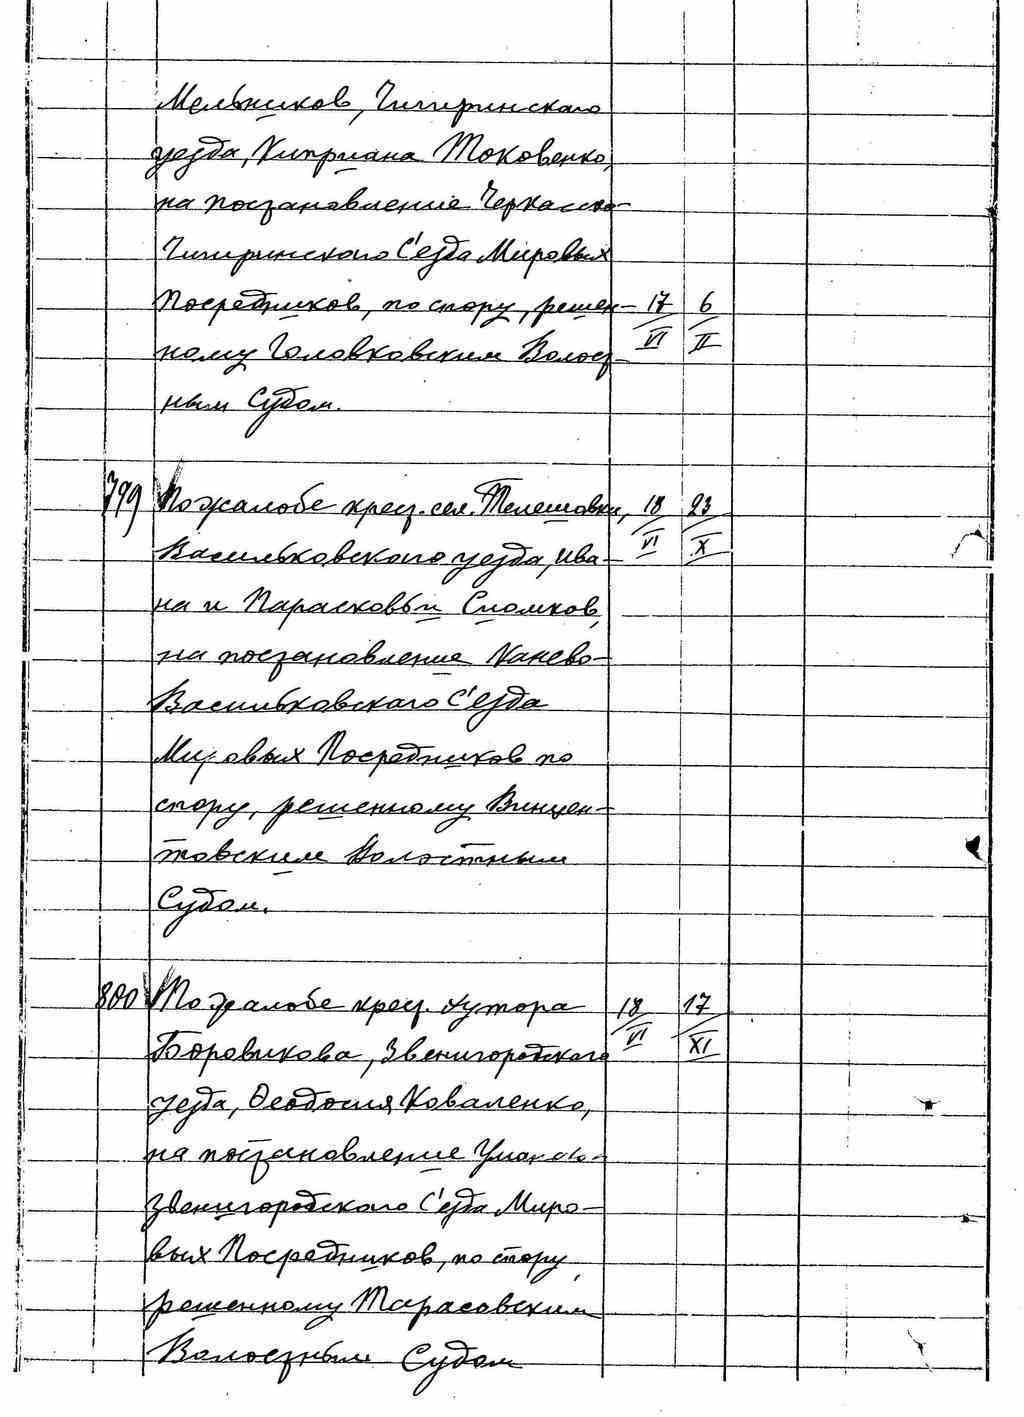 Мельников, Чигиринскаго
уезда, Киприана Токовенко,
на постановление Черкасско-
Чигиринского С'езда Мировых
Посредников, по спору, решен- 17/VI 6/II
ному Головковским Волост-
ным Судом.
799 По жалобе крест. сел. Телешовки, 18/VI 23/X
Васильковского уезда, Ива-
на и Парасковьи Сломков,
на постановление Канево-
Васильковского С'езда
Мировых Посредников по
спору, решенному Винцен-
товским Волостным
Судом.
800 По жалобе крест. хутора 18/VI 17/XI
Боровикова, Звенигородского
уезда, Феодосия Коваленко,
на постановление Уманско-
Звенигородского С'езда Миро-
вых Посредников, по спору,
решенному Тарасовским
Волостным Судом